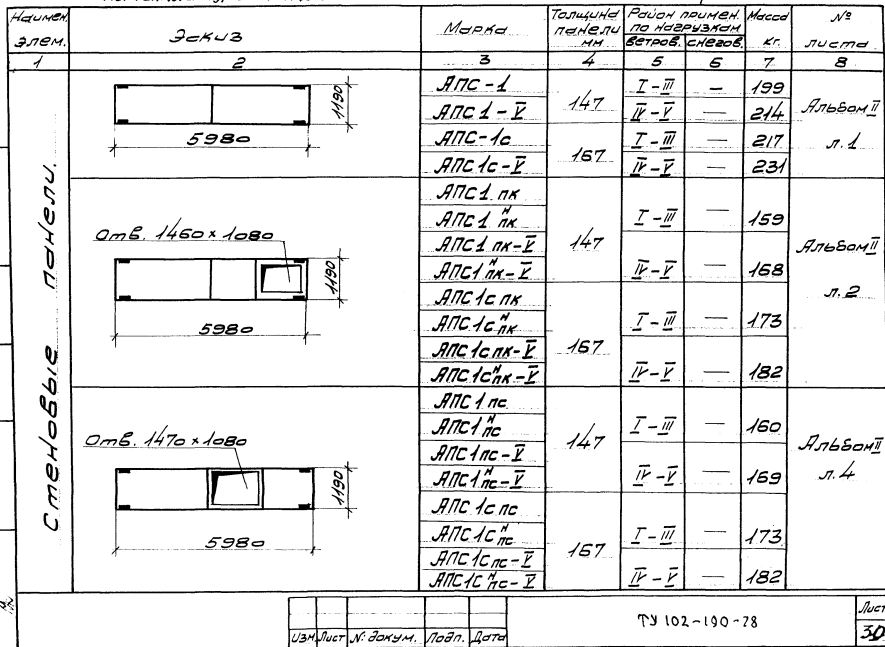 Наимен. элем. | Эскиз | Марка | Толщина панели мм | Район примен. по нагрузкам ветров. снегов. | Масса кг. | № листа
1 2 3 4 5 6 7 8
Стеновые панели.
5980 1190
АПС-1 147 I-III — 199 Альбом II
АПС 1-V IV-V — 214 л.1
АПС-1с 167 I-III — 217
АПС 1с-V IV-V — 231
Отв. 1460 × 1080
5980 1190
АПС1 пк 147 I-III — 159 Альбом II
АПС1 н пк
АПС1 пк-V IV-V — 168 л.2
АПС1 н пк-V
АПС1с пк 167 I-III — 173
АПС1с н пк
АПС1с пк-V IV-V — 182
АПС1с н пк-V
Отв. 1470 × 1080
5980 1190
АПС1 пс 147 I-III — 160 Альбом II
АПС1 н пс
АПС1 пс-V IV-V — 169 л.4
АПС1 н пс-V
АПС1с пс 167 I-III — 173
АПС1с н пс
АПС1с пс-V IV-V — 182
АПС1с н пс-V
Изм Лист № докум. Подп. Дата
ТУ 102-190-78
Лист
30